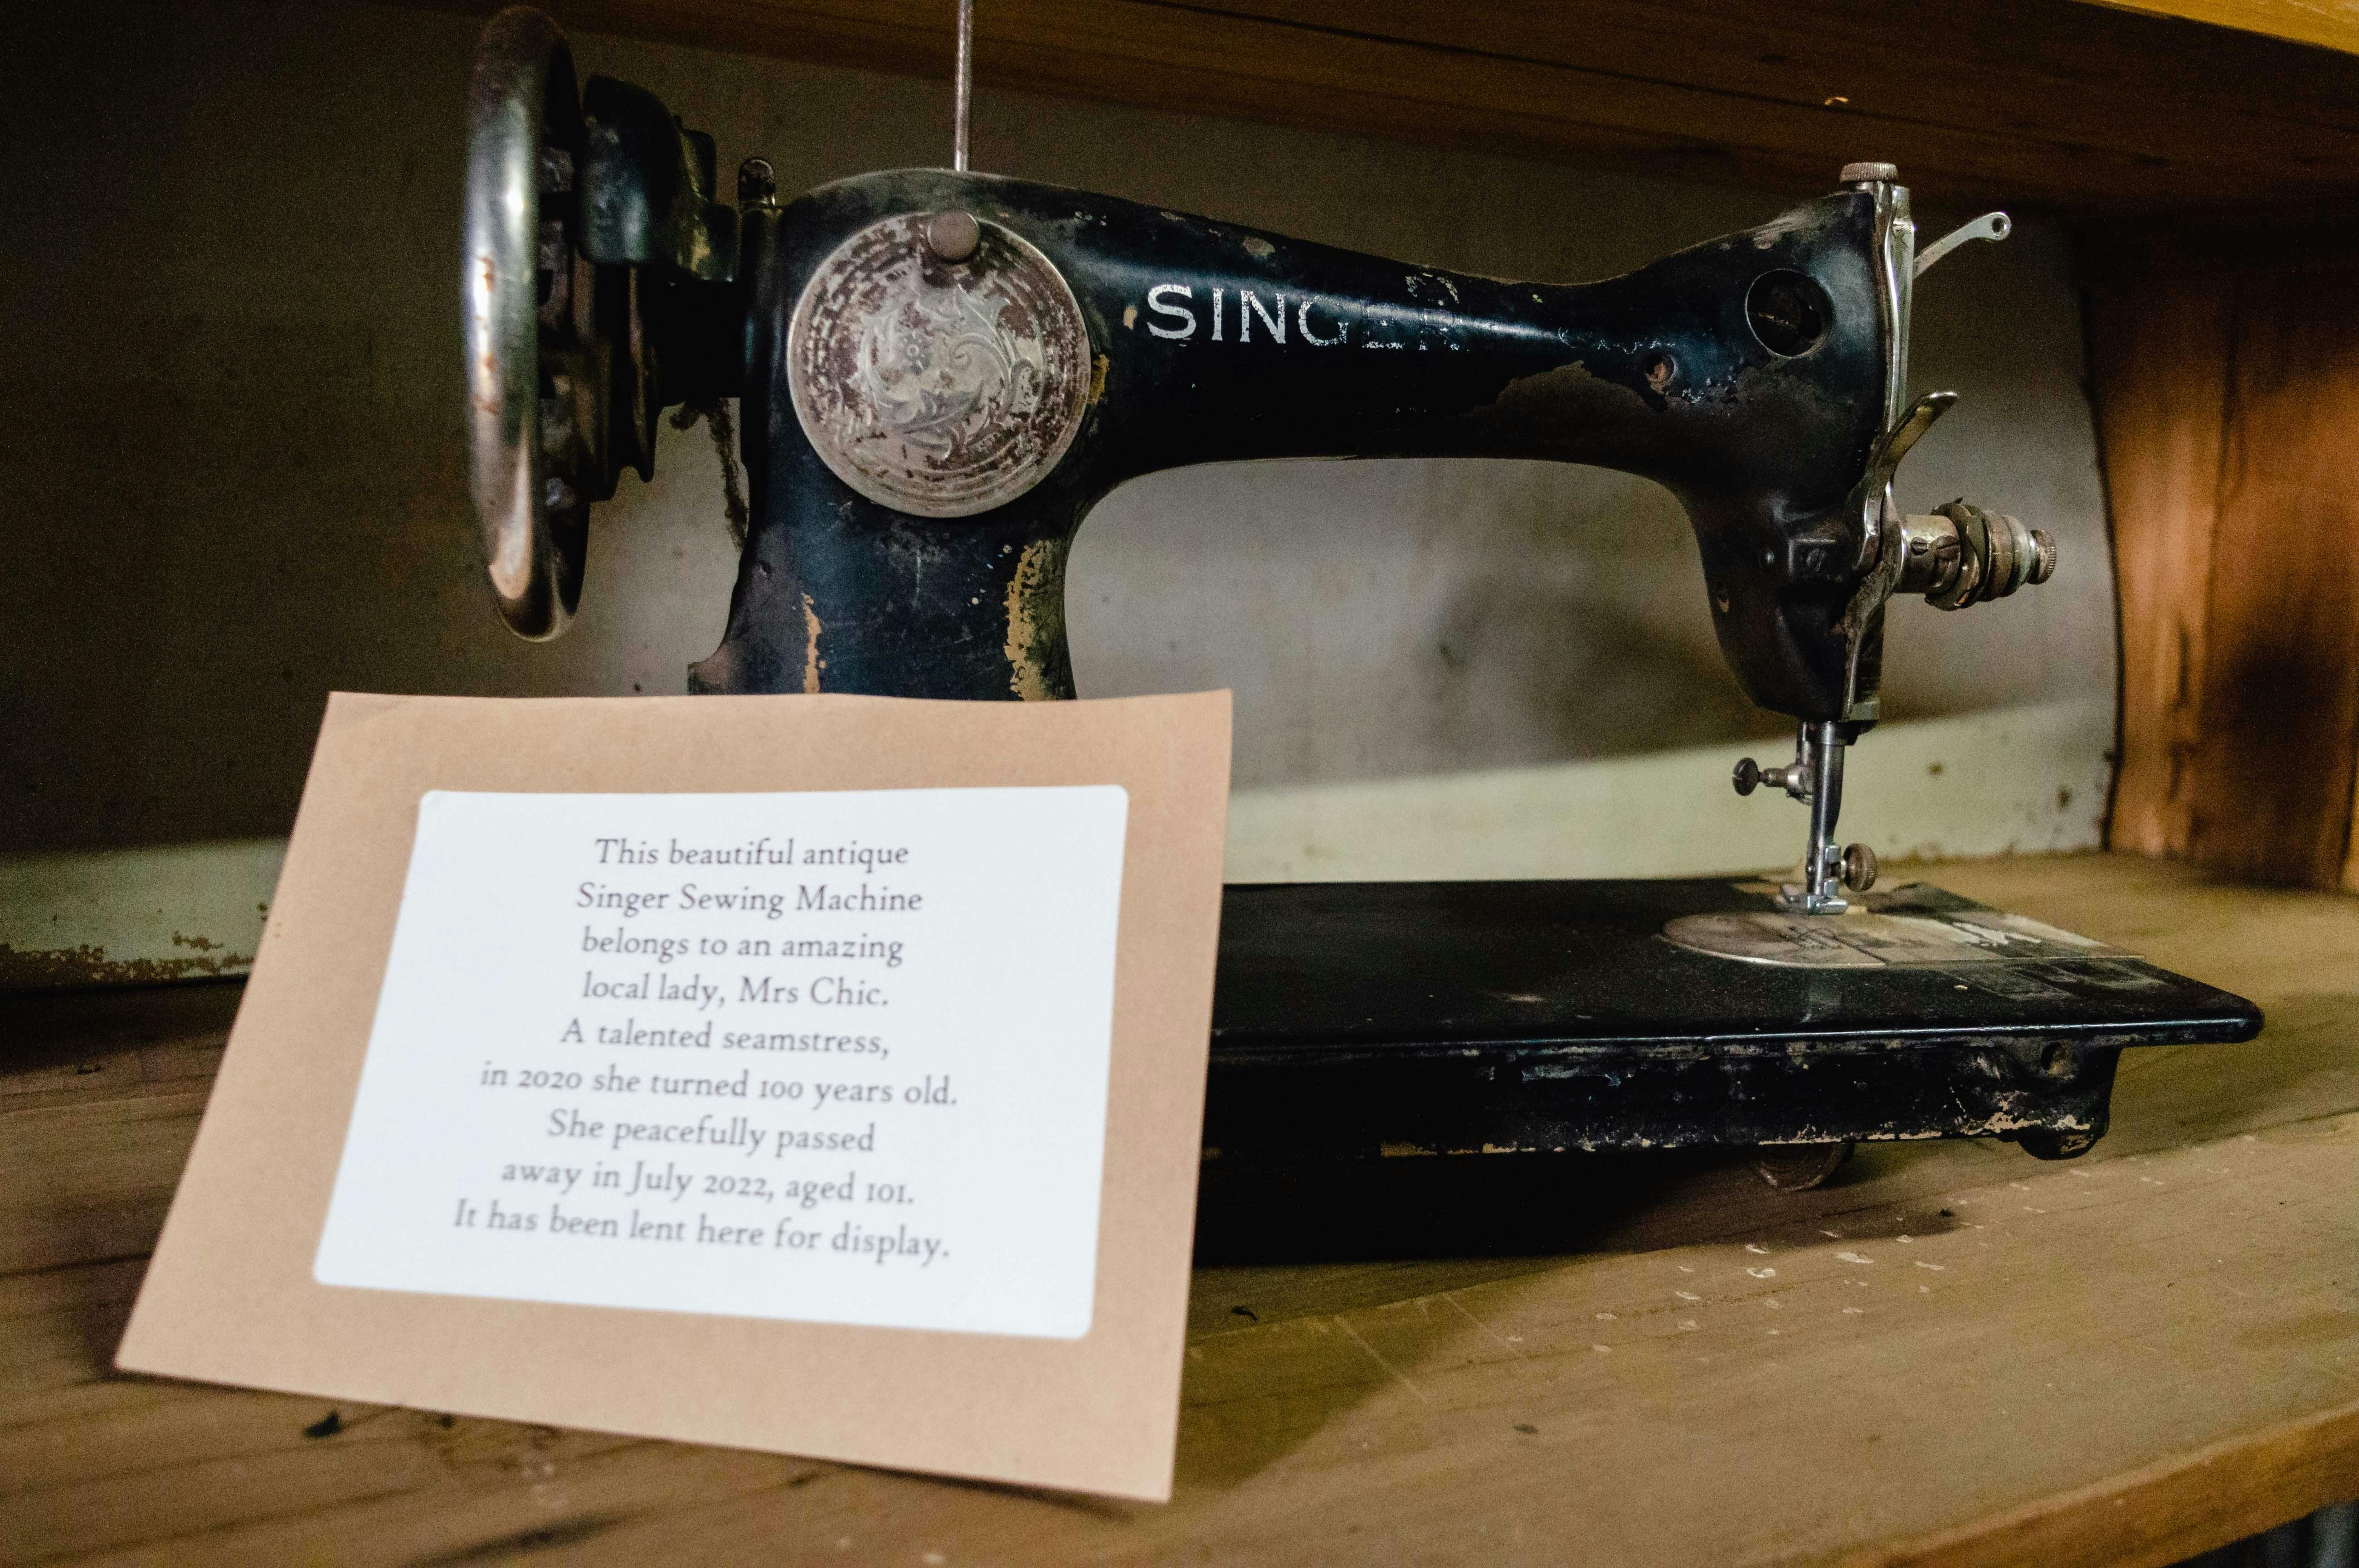 SINGER
This beautiful antique
Singer Sewing Machine
belongs to an amazing
local lady, Mrs Chic.
A talented seamstress,
in 2020 she turned 100 years old.
She peacefully passed
away in July 2022, aged 101.
It has been lent here for display.